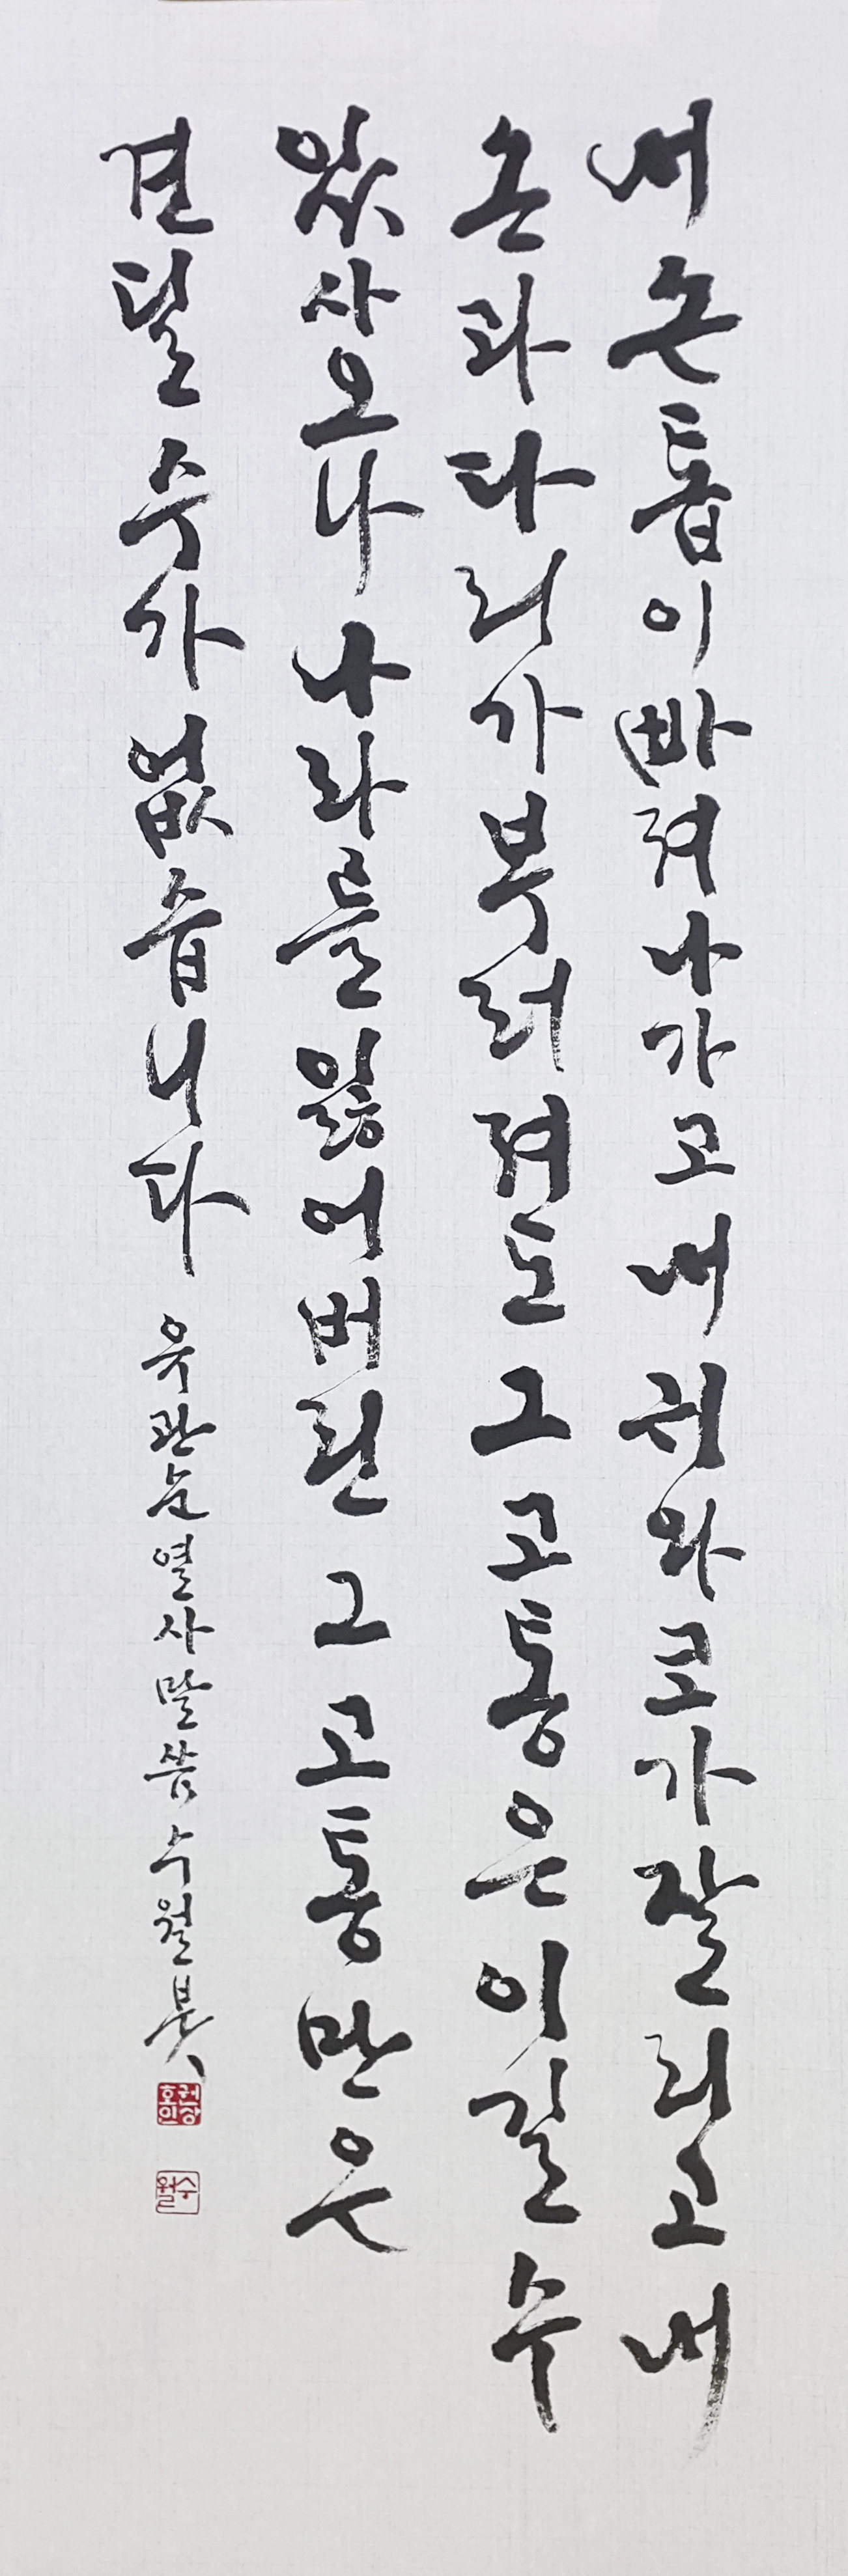 내 손톱이 빠져나가고 내 귀와 코가 잘리고 내
손과 다리가 부러져도 그 고통은 이길 수
있사오나 나라를 잃어버린 그 고통만은
견딜 수가 없습니다 유관순 열사 말씀 수월
수월